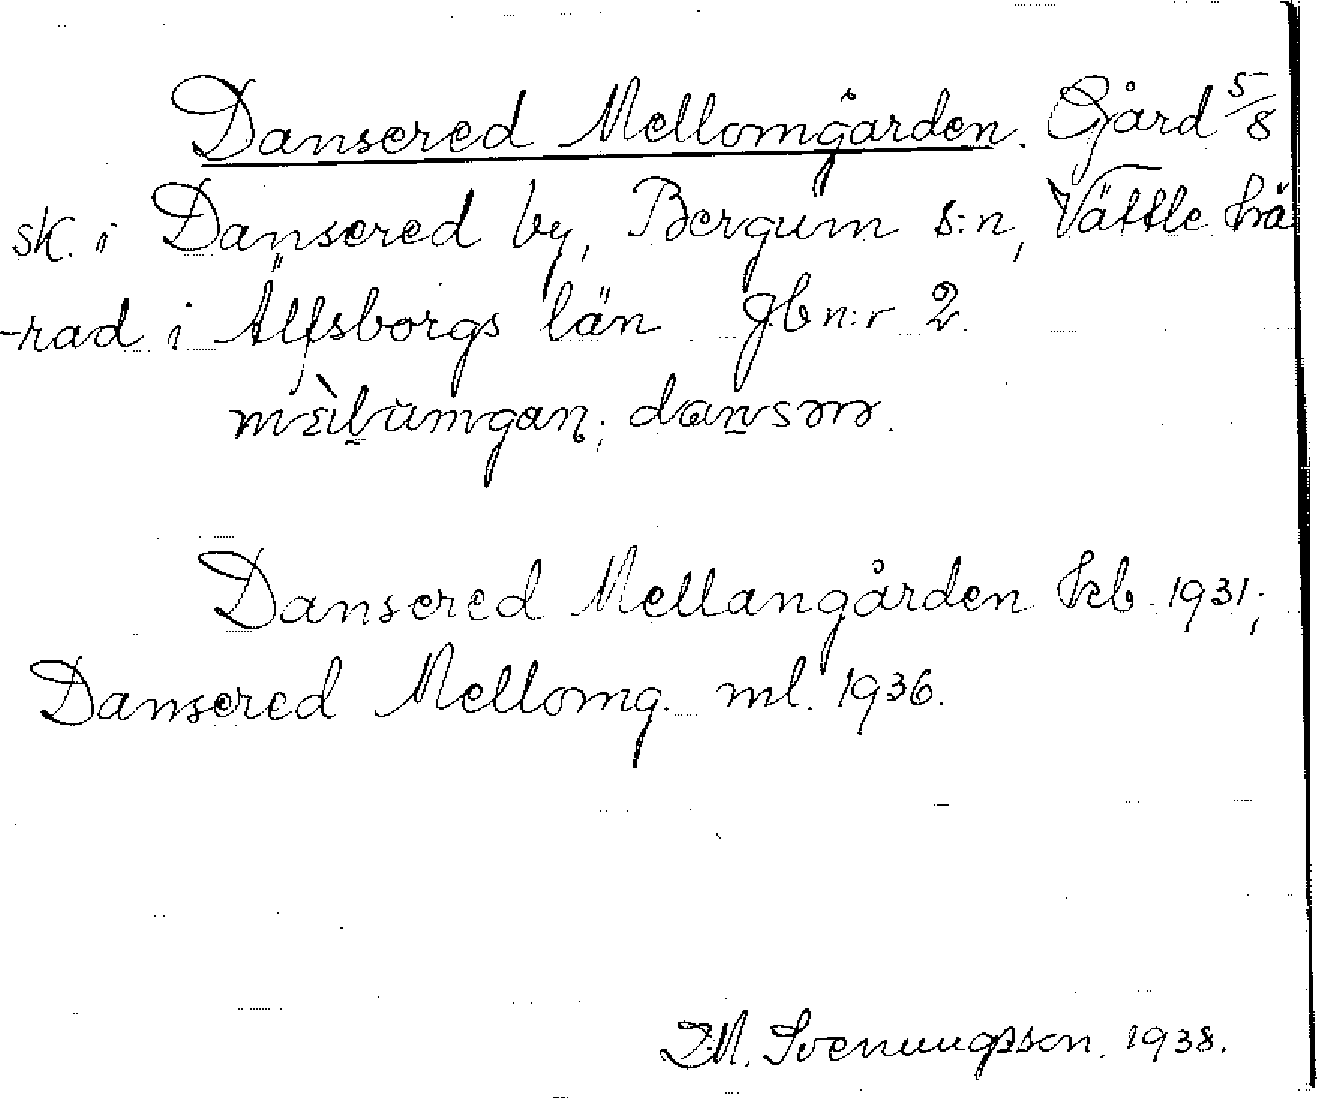 Dansered Mellomgården. Gård 5/8
sk. i Dansered by, Bergum s:n, Vättle hä
-rad i Älfsborgs län gb n:r 2.
Dansered Mellangården kb 1931;
Dansered Mellomg. ml. 1936.
Svenungsson. 1938.